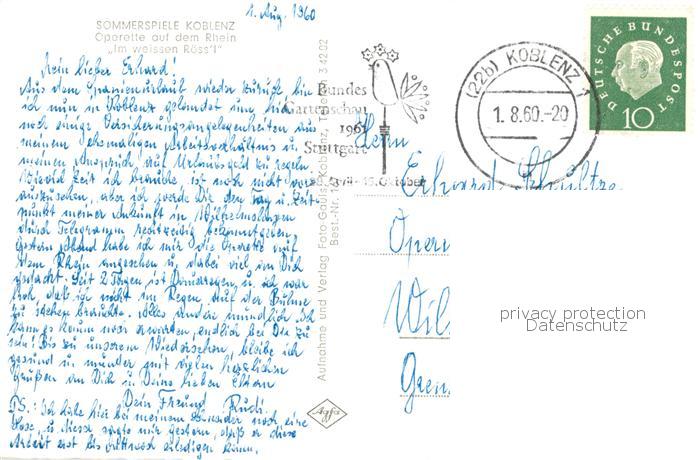 1. Aug. 1960
SOMMERSPIELE KOBLENZ
Operette auf dem Rhein
„Im weissen Röss'l"
Mein lieber Erhard!
Aus dem Spanienurlaub wieder zurück bin
ich nun in Koblenz gelandet und hier
noch einige Versicherungsangelegenheiten aus
meinem ehemaligen Arbeitsverhältnis u.
meinen Anspruch auf Urlaubsgeld zu regeln.
Wieviel Zeit ich brauche, ist noch nicht vor-
auszusehen, aber ich werde Dir den Tag u. Zeit-
punkt meiner Ankunft in
durch Telegramm rechtzeitig bekanntgeben.
Gestern Abend habe ich mir die Operette auf
dem Rhein angesehen u. dabei viel an Dich
gedacht. Seit 2 Tagen ist Dauerregen u. ich war
froh, daß ich nicht im Regen auf der Bühne
zu stehen brauchte. Alles andere mündlich. Ich
kann es kaum noch erwarten, endlich bei Dir zu
sein! Bis zu unserem Wiedersehen, bleibe ich
gesund u. munter mit vielen herzlichen
Grüßen an Dich u. Deine lieben Eltern
Dein Freund Rudi.
PS.: Ich habe hier bei meinem Schneider noch eine
Hose, u. dieser sagte mir gestern, daß er diese
Arbeit erst bis Mittwoch erledigen kann.
Aufnahme und Verlag Foto Gauls, Koblenz, Telefon 34202
Best.-Nr.
Agfa
Bundes
Gartenschau
1961
Stuttgart
April - 15. Oktober
(22b) KOBLENZ 1
1. 8.60.-20
DEUTSCHE BUNDESPOST
10
Herrn
Erhard
Opern
Wil
Gren
privacy protection
Datenschutz